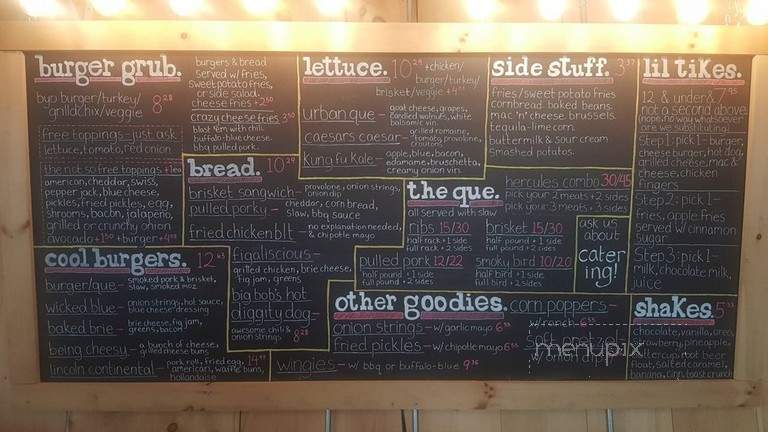 burger grub.
byo burger/turkey/
grilldchix/veggie 8
free toppings-just ask
lettuce, tomato, red onion
the not so free toppings +1.00
american, cheddar, swiss,
pepper jack, blue cheese,
pickles, fried pickles, egg,
shrooms, bacon, jalapeño,
grilled or crunchy onion
avocado +1.50 +burger +4
burgers & bread
served w/ fries,
sweet potato fries,
or side salad.
cheese fries +2.50
crazy cheese fries 3.50
blast 'em with chili
buffalo-blue cheese.
bbq pulled pork.
lettuce. 10 +chicken/
burger/turkey/
brisket/veggie +4
urban que - goat cheese, grapes,
candied walnuts, white
balsamic vin.
caesars caesar - grilled romaine,
tomato, provolone,
croutons
kung fu kale - apple, blue, bacon,
edamame, bruschetta,
creamy onion vin.
side stuff. 3
fries/sweet potato fries
cornbread. baked beans.
mac 'n' cheese. brussels.
tequila-lime corn.
buttermilk & sour cream
smashed potato.
lil tikes.
12 & under & 7.95
not a second above
(nope, no way, whatsoever
are we substituting)
Step 1: pick 1 - burger,
cheese burger, hot dog,
grilled cheese, mac &
cheese, chicken
fingers
Step 2: pick 1 -
fries, apple fries
served w/ cinnamon
sugar
Step 3: pick 1 -
milk, chocolate milk,
juice
bread. 10
brisket sangwich - provolone, onion strings,
onion dip
pulled porky - cheddar, corn bread,
slaw, bbq sauce
fried chicken blt - no explanation needed,
& chipotle mayo
figaliscious -
grilled chicken, brie cheese,
fig jam, greens
big bob's hot
diggity dog -
awesome chili &
onion strings 8
the que.
all served with slaw
hercules combo 30/45
pick your 2 meats + 2 sides
pick your 3 meats + 3 sides
ribs 15/30
half rack + 1 side
full rack + 2 sides
brisket 15/30
half pound + 1 side
full pound + 2 sides
pulled pork 12/22
half pound + 1 side
full pound + 2 sides
smoky bird 10/20
half bird + 1 side
full bird + 2 sides
ask us
about
cater
ing!
cool burgers. 12
burger/que - smoked pork & brisket,
slaw, smoked moz
wicked blue - onion strings, hot sauce,
blue cheese dressing
baked brie - brie cheese, fig jam,
greens, bacon
being cheesy - a bunch of cheesy
grilled cheese buns
lincoln continental - pork roll, fried egg, 14
american, waffle buns,
hollandaise
other goodies.
onion strings - w/ garlic mayo 6
fried pickles - w/ chipotle mayo 6
corn poppers -
w/ ranch 6
w/ onion dip
wingies - w/ bbq or buffalo-blue 9
shakes. 5
chocolate, vanilla, oreo,
strawberry, pineapple,
buttercup, root beer
float, salted caramel,
banana, cinn. toast crunch
menupix